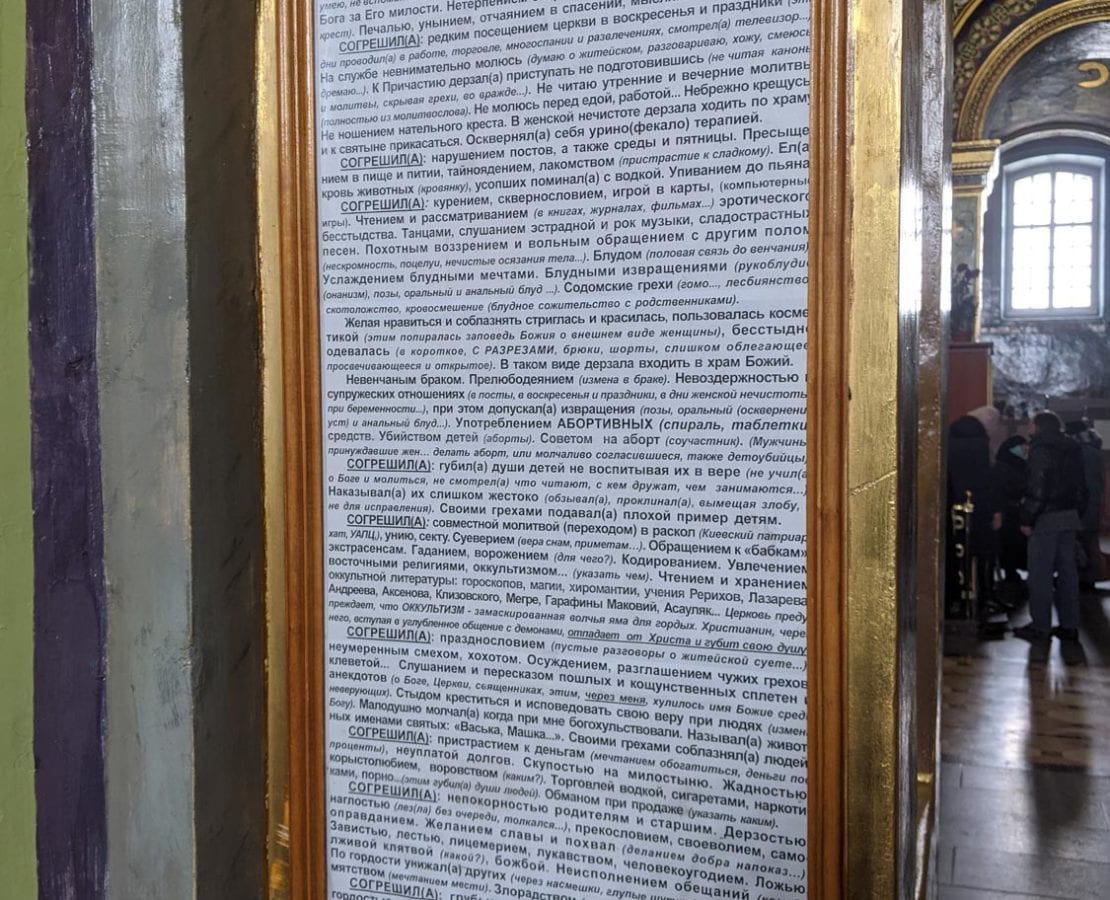 умею, не вспоми
Бога за Его милости. Нетерпением
крест). Печалью, унынием, отчаянием в спасении,
СОГРЕШИЛ(А): редким посещением церкви в воскресенья и праздники (эти
дни проводил(а) в работе, торговле, многоспании и развлечениях, смотрел(а) телевизор...)
На службе невнимательно молюсь (думаю о житейском, разговариваю, хожу, смеюсь
дремаю...). К Причастию дерзал(а) приступать не подготовившись (не читая каноны
и молитвы, скрывая грехи, во вражде...). Не читаю утренние и вечерние молитвы
(полностью из молитвослова). Не молюсь перед едой, работой... Небрежно крещусь
Не ношением нательного креста. В женской нечистоте дерзала ходить по храму
и к святыне прикасаться. Осквернял(а) себя урино(фекало) терапией.
СОГРЕШИЛ(А): нарушением постов, а также среды и пятницы. Пресыще
нием в пище и питии, тайноядением, лакомством (пристрастие к сладкому). Ел(а
кровь животных (кровянку), усопших поминал(а) с водкой. Упиванием до пьяна
СОГРЕШИЛ(А): курением, сквернословием, игрой в карты, (компьютерны
игры). Чтением и рассматриванием (в книгах, журналах, фильмах...) эротического
бесстыдства. Танцами, слушанием эстрадной и рок музыки, сладострастных
песен. Похотным воззрением и вольным обращением с другим полом
(нескромность, поцелуи, нечистые осязания тела...). Блудом (половая связь до венчания)
Услаждением блудными мечтами. Блудными извращениями (рукоблуди
(онанизм), позы, оральный и анальный блуд ...). Содомские грехи (гомо..., лесбиянство
скотоложство, кровосмешение (блудное сожительство с родственниками).
Желая нравиться и соблазнять стриглась и красилась, пользовалась косме
тикой (этим попиралась заповедь Божия о внешнем виде женщины), бесстыдн
одевалась (в короткое, С РАЗРЕЗАМИ, брюки, шорты, слишком облегающее
просвечивающееся и открытое). В таком виде дерзала входить в храм Божий.
Невенчаным браком. Прелюбодеянием (измена в браке). Невоздержностью
супружеских отношениях (в посты, в воскресенья и праздники, в дни женской нечистоты
при беременности...), при этом допускал(а) извращения (позы, оральный (осквернени
уст) и анальный блуд...). Употреблением АБОРТИВНЫХ (спираль, таблетки
средств. Убийством детей (аборты). Советом на аборт (соучастник). (Мужчины
принуждавшие жен... делать аборт, или молчаливо согласившиеся, также детоубийцы,
СОГРЕШИЛ(А): губил(а) души детей не воспитывая их в вере (не учил(а
о Боге и молиться, не смотрел(а) что читают, с кем дружат, чем занимаются...)
Наказывал(а) их слишком жестоко (обзывал(а), проклинал(а), вымещая злобу,
не для исправления). Своими грехами подавал(а) плохой пример детям.
СОГРЕШИЛ(А): совместной молитвой (переходом) в раскол (Киевский патриар
хат, УАПЦ), унию, секту. Суеверием (вера снам, приметам...). Обращением к «бабкам»
экстрасенсам. Гаданием, ворожением (для чего?). Кодированием. Увлечением
восточными религиями, оккультизмом... (указать чем). Чтением и хранением
оккультной литературы: гороскопов, магии, хиромантии, учения Рерихов, Лазарева
Андреева, Аксенова, Клизовского, Мегре, Гарафины Маковий, Асауляк... Церковь преду
преждает, что ОККУЛЬТИЗМ - замаскированная волчья яма для гордых. Христианин, чере
него, вступая в углубленное общение с демонами, отпадает от Христа и губит свою душу
СОГРЕШИЛ(А): празднословием (пустые разговоры о житейской суете...)
неумеренным смехом, хохотом. Осуждением, разглашением чужих грехов
клеветой... Слушанием и пересказом пошлых и кощунственных сплетен и
анекдотов (о Боге, Церкви, священниках, этим, через меня, хулилось имя Божие сред
неверующих). Стыдом креститься и исповедовать свою веру при людях (измен
Богу). Малодушно молчал(а) когда при мне богохульствовали. Называл(а) живот
ных именами святых: «Васька, Машка...». Своими грехами соблазнял(а) людей
СОГРЕШИЛ(А): пристрастием к деньгам (мечтанием обогатиться, деньги под
проценты), неуплатой долгов. Скупостью на милостыню. Жадностью
корыстолюбием, воровством (каким?). Торговлей водкой, сигаретами, наркоти
ками, порно...(этим губил(а) души людей). Обманом при продаже (указать каким).
СОГРЕШИЛ(А): непокорностью родителям и старшим. Дерзостью
наглостью (лез(ла) без очереди, толкался...), прекословием, своеволием, само-
оправданием. Желанием славы и похвал (деланием добра напоказ...)
Завистью, лестью, лицемерием, лукавством, человекоугодием. Ложью
лживой клятвой (какой?), божбой. Неисполнением обещаний
По гордости унижал(а) других (через насмешки, глупые
мятством (мечтанием мести). Злорадством
СОГРЕШИЛ(А):